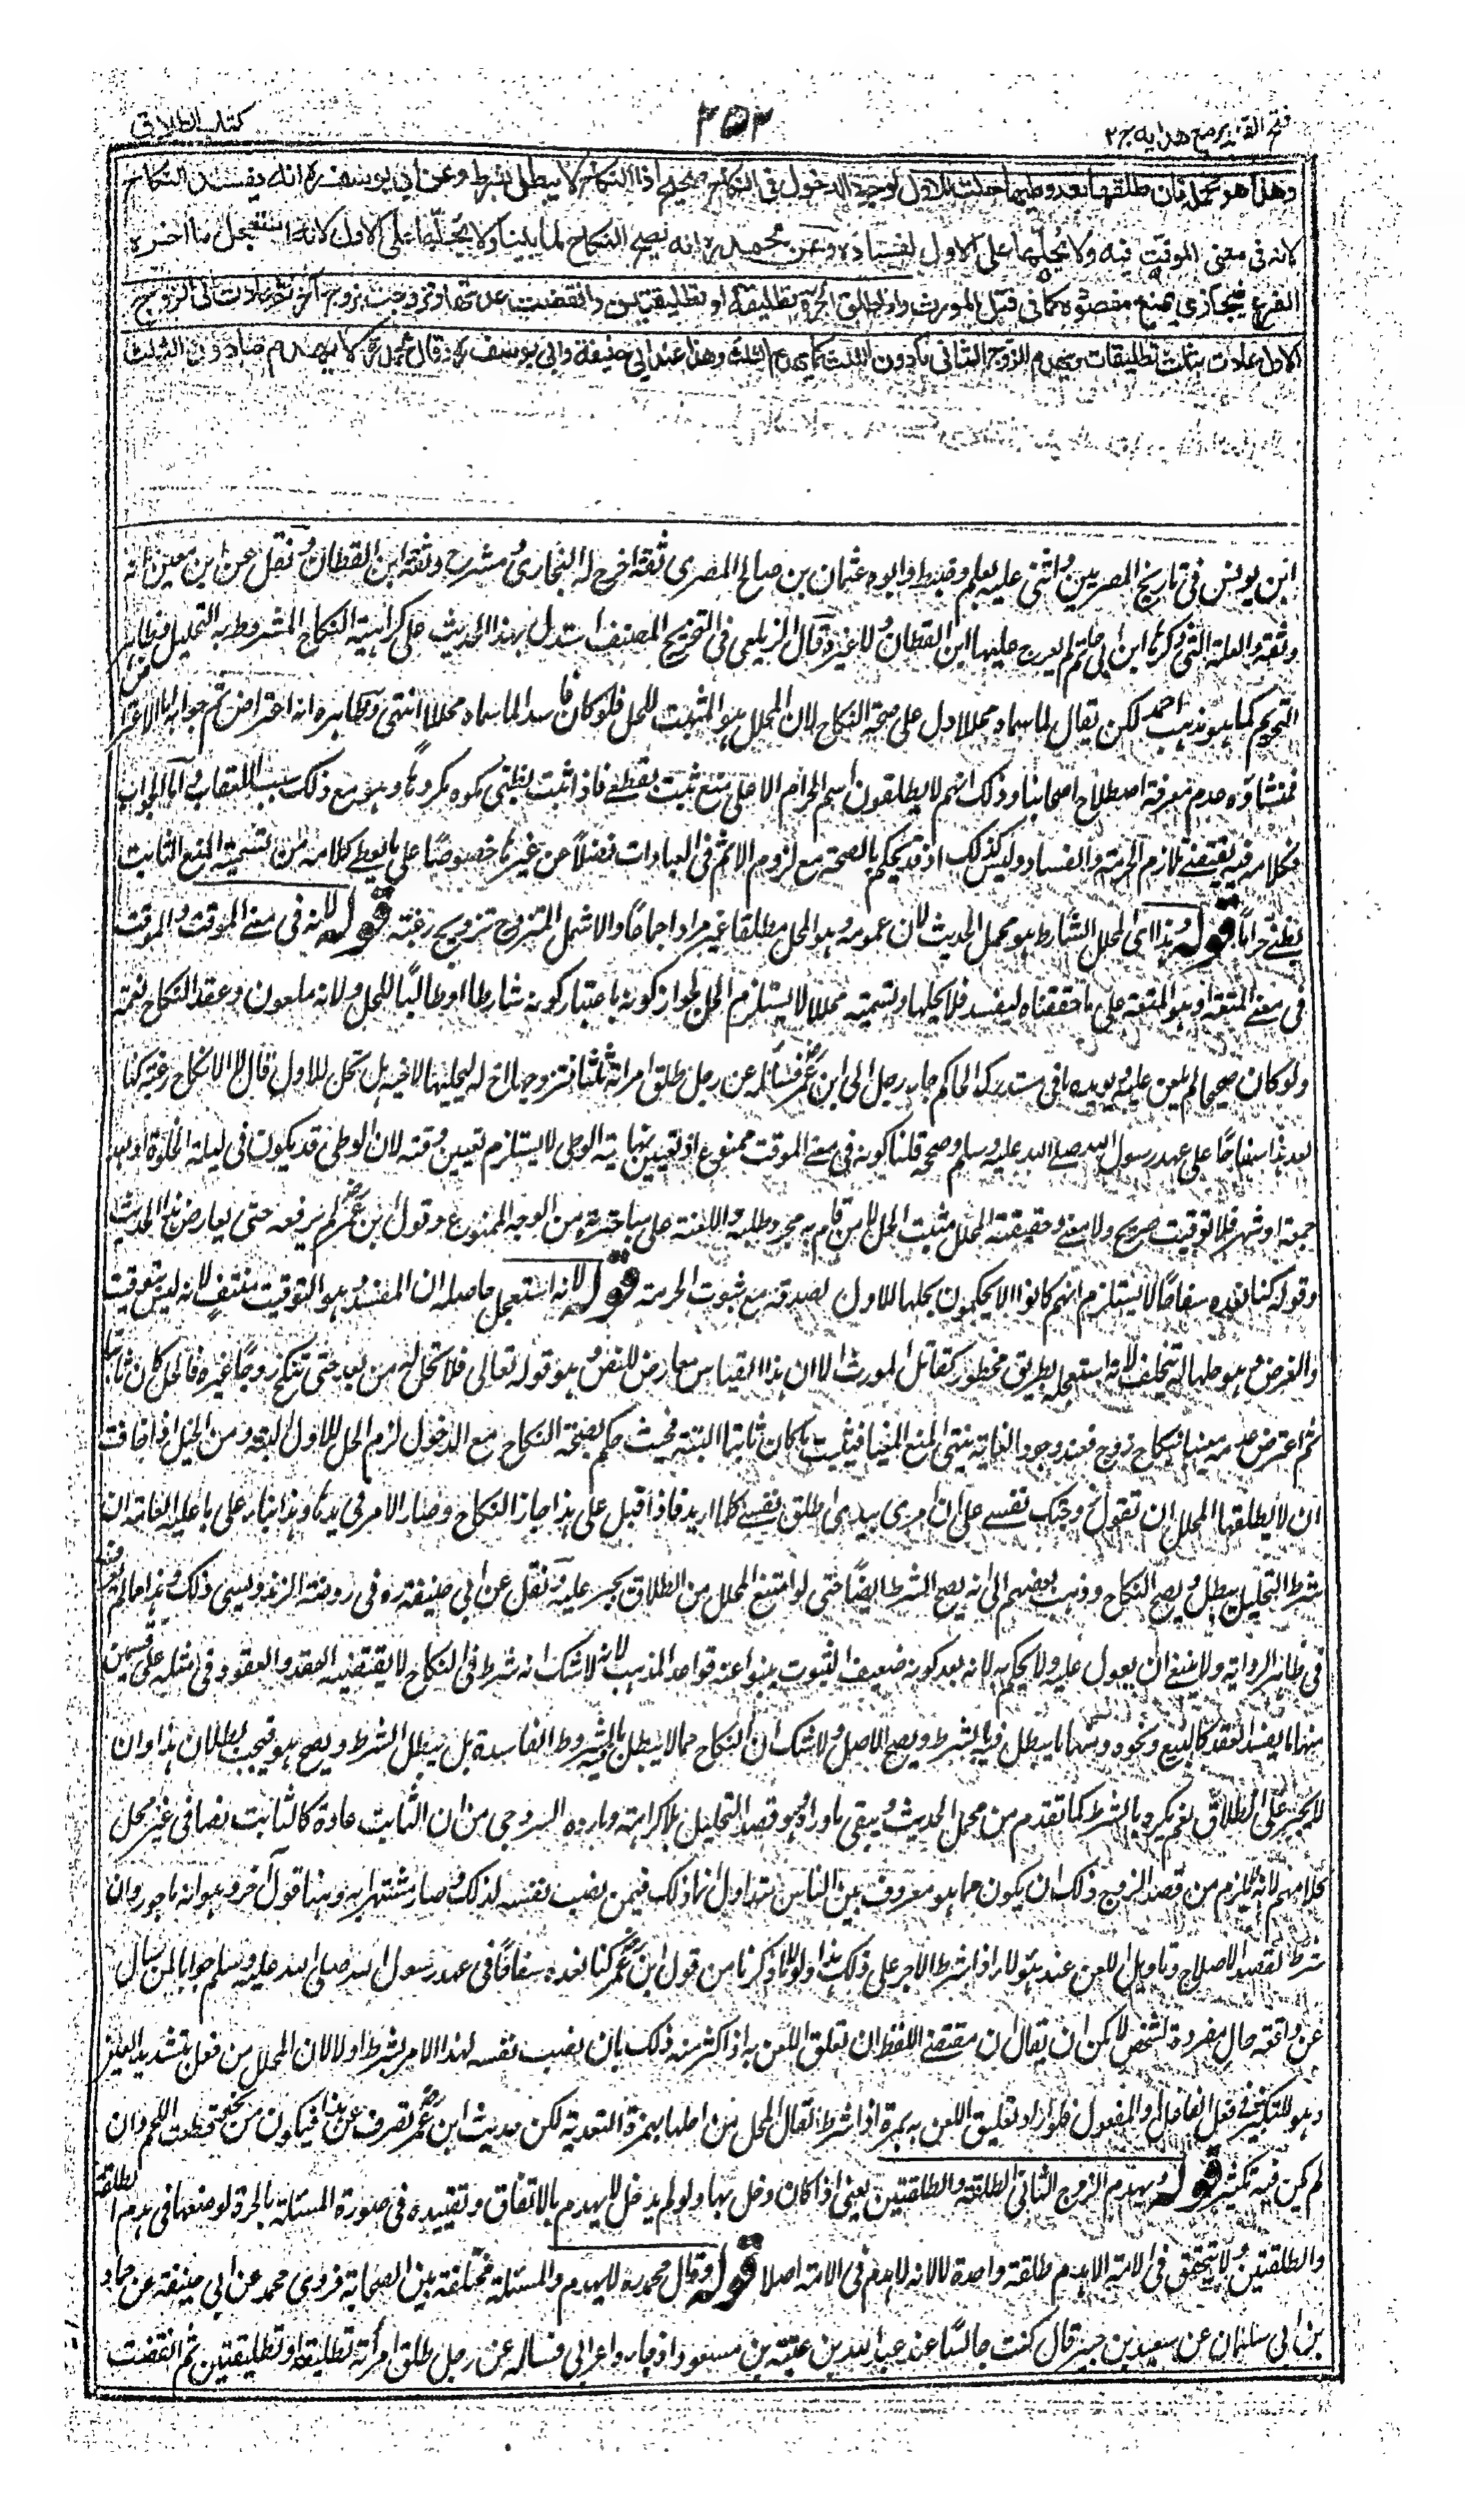 فتح القدير مع هدايه ج ٢
٢٥٣
كتاب الطلاق
وهذا هو محمله فان طلقها بعد وطيها حلت للاول لوجود الدخول في النكاح صحيح اذا النكاح لا يبطل بشرط وعن ابي يوسف ره انه يفسد النكاح
لانه في معنى الموقت فيه ولا يحلها على الاول لفساده وعن محمد ره انه يصح النكاح لما بينا ولا يحلها على الاول لانه استعجل ما اخره
الشرع فيجازى بمنع مقصوده كما في قتل المورث واذا طلق الحرة تطليقة او تطليقتين وانقضت عدتها وتزوجت بزوج اخر ثم عادت الى الزوج
الاول عادت بثلث تطليقات ويهدم الزوج الثاني ما دون الثلث كما يهدم الثلث وهذا عند ابي حنيفة وابي يوسف ره وقال محمد ره لا يهدم ما دون الثلث
ابن يونس في تاريخ المصريين واثنى عليه بعلم وضبط وابوه عثمان بن صالح المصري ثقة اخرج له البخاري ومشرح وثقه ابن القطان ونقل عن ابن معين انه
وثقه والعلة التي ذكرها ابن ابي حاتم لم يعرج عليها ابن القطان ولا غيره وقال الزيلعي في التخريج المصنف استدل بهذا الحديث على كراهية النكاح المشروط به التحليل وظاهره
التحريم كما هو مذهب احمد لكن يقال لما سماه محللا دل على صحة النكاح لان المحلل هو المثبت للحل فلو كان فاسدا لما سماه محللا انتهى وظاهره انه اعتراض ثم جوابه اما الاعتراض
فمنشاؤه عدم معرفة اصطلاح اصحابنا وذلك انهم لا يطلقون اسم الحرام الا على منع ثبت بقطعي فاذا ثبت بظني سموه مكروها وهو مع ذلك سبب للعقاب واما الجواب
فكلامه فيه يقتضي تلازم الحرمة والفساد وليس كذلك اذ قد يحكم بالصحة مع لزوم الاثم في العبادات فضلا عن غيرها خصوصا على ما يعطي كلامه من تسمية المنع الثابت
بظني حراما قوله وهذا اي المحلل الشارط هو محمل الحديث لان عمومه وهو المحل مطلقا غير مراد اجماعا والا شمل المتزوج تزويج رغبة قوله لانه في معنى الموقت والموقت
في معنى المتعة او هو المتعة على ما حققناه ليفسد فلا يحلها وتسميته محللا لا يستلزم الحل لجواز كونه باعتبار كونه شارطا او طالبا للحل ولانه ملعون وعقد النكاح نعمة
ولو كان صحيحا لم يلعن عليه ويؤيده ما في مستدرك الحاكم جاء رجل الى ابن عمر فساله عن رجل طلق امراته ثلثا فتزوجها اخ له ليحلها لاخيه هل تحل للاول قال لا الا نكاح رغبة كنا
نعد هذا سفاحا على عهد رسول الله صلى الله عليه وسلم وصححه قلنا كونه في معنى الموقت ممنوع اذ تعيين نهاية الوطي لا يستلزم تعيين وقته لان الوطي قد يكون في ليلة الخلوة او بعد
جمعة او شهر فلا توقيت صريح ولا معنى وحقيقة المحلل مثبت الحل لا من قام به مجرد طلبه واللعنة على مباشرته من الوجه الممنوع وقول ابن عمر لم يرفعه حتى يعارض هذا الحديث
وقوله كنا نعده سفاحا لا يستلزم انهم كانوا لا يحكمون بحلها للاول لصدقه مع ثبوت الحرمة قوله لانه استعجل حاصله ان المفسد وهو التوقيت منتف لانه ليس بتوقيت
والغرض وهو حلها له تخلف لانه استعجله بطريق محظور كقاتل المورث الا ان هذا القياس معارض للنص وهو قوله تعالى فلا تحل له من بعد حتى تنكح زوجا غيره فالحل كان ثابتا
ثم اعترض عدمه مغيا بنكاح زوج فعند وجود الغاية ينتهي المنع المغيا فيثبت ما كان ثابتا البتة فحيث حكم بصحة النكاح مع الدخول لزم الحل للاول البتة ومن الحيل اذا خافت
ان لا يطلقها المحلل ان تقول زوجتك نفسي على ان امري بيدي اطلق نفسي كلما اريد فاذا قبل على هذا جاز النكاح وصار الامر في يدها وهذا بناء على ما عليه العامة ان
شرط التحليل يبطل ويصح النكاح وذهب بعضهم الى انه يصح الشرط ايضا حتى لو امتنع المحلل من الطلاق يجبر عليه ونقل عن ابي حنيفة ره وفي روضة الزندويسي ذلك وهذا مما لم يعرف
في ظاهر الرواية ولا ينبغي ان يعول عليه ولا يحكم به لانه بعد كونه ضعيف الثبوت ينبو عنه قواعد المذهب لانه لا شك انه شرط في النكاح لا يقتضيه العقد والعقود في مثله على قسمين
منها ما يفسد العقد كالبيع ونحوه ومنها ما يبطل فيه الشرط ويصح الاصل ولا شك ان النكاح مما لا يبطل بالشروط الفاسدة بل يبطل الشرط ويصح هو فيجب بطلان هذا وان
لا يجبر على الطلاق نعم يكره الشرط كما تقدم من محمل الحديث ويبقى ما وراءه وهو قصد التحليل بلا كراهة وما رده السروجي من ان الثابت عادة كالثابت نصا في غير محل
كلامهم لانه لا يلزم من قصد الزوج ذلك ان يكون مما هو معروف بين الناس متداول انما ذلك فيمن نصب نفسه لذلك وصار مشتهرا به وهنا قول آخر وهو انه ماجور وان
شرط لقصد الاصلاح وتاويل اللعن عند هؤلاء اذا شرط الاجر على ذلك هذا ولولا ما ذكرنا من قول ابن عمر كنا نعده سفاحا في عهد رسول الله صلى الله عليه وسلم جوابا لمن سال
عن واقعة حال مفردة لشخص لامكن ان يقال ان مقتضى اللفظ ان تعلق اللعن به اذا كثر منه ذلك بان نصب نفسه لهذا الامر بشرط او لا لان المحلل من فعل بتشديد العين
وهو للتكثير في فعل الفاعل او المفعول فلو اراد تعليق اللعن به بمرة اذا شرط لقال المحل من احلها بهمزة التعدية لكن حديث ابن عمر تصرف عن هذا فيكون من نحو قطعت اللحم وان
لم يكن فيه تكثير قوله ويهدم الزوج الثاني الطلقة والطلقتين يعني اذا كان دخل بها ولو لم يدخل لا يهدم بالاتفاق وتقييده في صورة المسئلة بالحرة لوضعها في هدم الطلقة
والطلقتين ولا يتحقق في الامة الا هدم طلقة واحدة لا لانه لا هدم في الامة اصلا قوله وقال محمد ره لا يهدم والمسئلة مختلفة بين الصحابة فروى محمد عن ابي حنيفة عن حماد
بن ابي سليمان عن سعيد بن جبير قال كنت جالسا عند عبد الله بن عتبة بن مسعود اذ جاءه اعرابي فساله عن رجل طلق امراته تطليقة او تطليقتين ثم انقضت